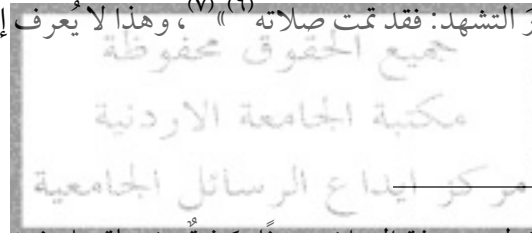 رَ التشهد: فقد تمت صلاته(٦)»(٧)، وهذا لا يُعرف إ
جميع الحقوق محفوظة
مكتبة الجامعة الاردنية
مركز ايداع الرسائل الجامعية